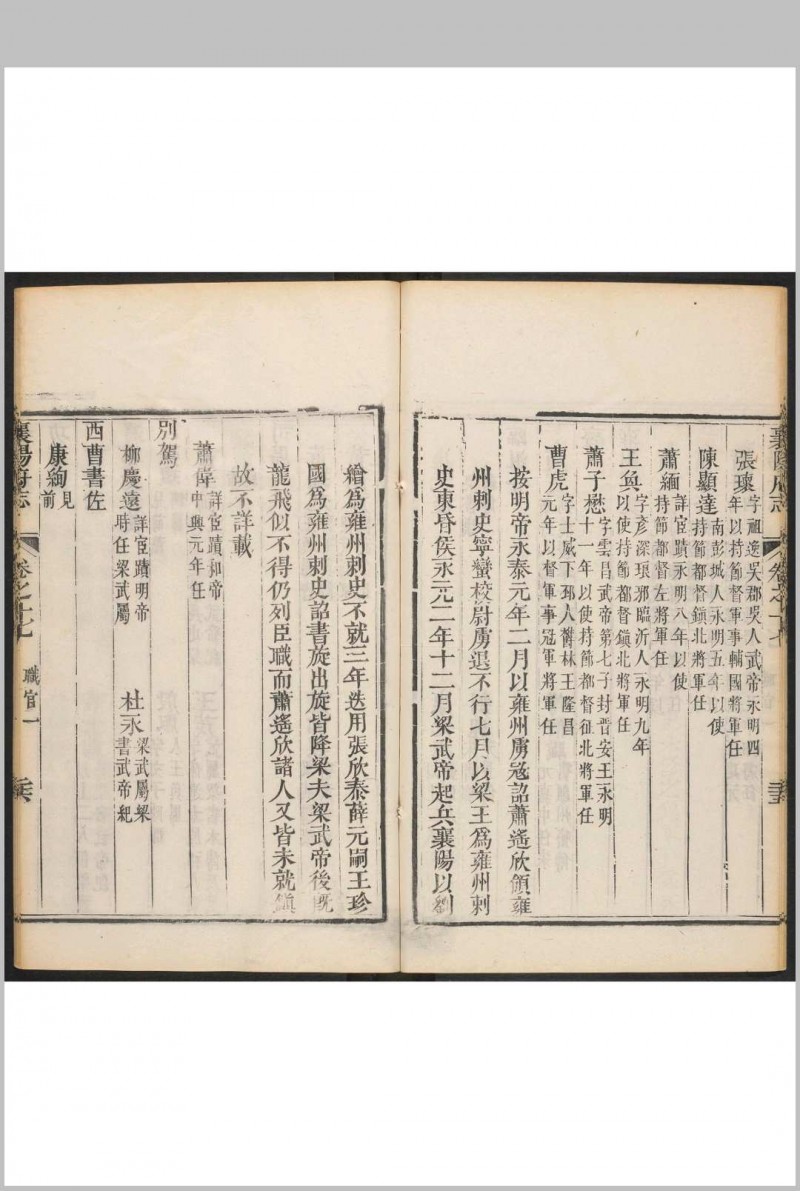 襄陽府志 卷之十七 三五
張瓌 字祖逸吳郡吳人武帝永明四
年以持節督軍事輔國將軍任
陳顯達 南彭城人永明五年以使
持節都督鎮北將軍任
蕭緬 詳宦蹟永明八年以使
持節都督左將軍任
王奐 字彥深琅邪臨沂人永明九年
以使持節都督鎮北將軍任
蕭子懋 字雲昌武帝第七子封晉安王永明
十一年以使持節都督征北將軍任
曹虎 字士威下邳人鬱林王隆昌
元年以督軍事冠軍將軍任
按明帝永泰元年二月以雍州虜寇詔蕭遙欣領雍
州刺史寧蠻校尉虜退不行七月以梁王為雍州刺
史東昏侯永元二年十二月梁武帝起兵襄陽以劉
繪為雍州刺史不就三年迭用張欣泰薛元嗣王珍
國為雍州刺史詔書旋出旋皆降梁夫梁武帝後既
龍飛似不得仍列臣職而蕭遙欣諸人又皆未就鎮
故不詳載
蕭偉 詳宦蹟和帝
中興元年任
別駕
柳慶遠 詳宦蹟明帝
時任梁武屬
杜永 梁武屬梁
書武帝紀
西曹書佐
康絢 見
前
襄陽府志 卷之十七 職官一 三六